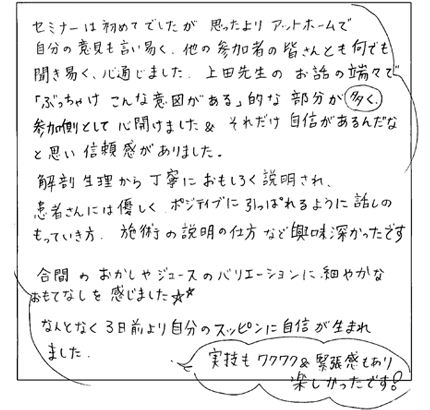 セミナーは初めてでしたが 思ったより アットホームで
自分の意見も言い易く、他の参加者の皆さんとも何でも
聞き易く、心通じました。上田先生の お話の端々で
「ぶっちゃけ こんな意図がある」的な 部分が 多く、
参加側として 心開けました & それだけ 自信があるんだな
と思い 信頼感がありました。
解剖生理から 丁寧に おもしろく 説明され、
患者さんには優しく ポジティブに 引っぱれるように 話しの
もっていき方、施術の説明の仕方など 興味深かったです
合間 の おかしやジュースのバリエーションに 細やかな
おもてなしを 感じました☆☆
なんとなく 3日前より 自分のスッピンに 自信が生まれ
ました。
実技も ワクワク & 緊張感もあり
楽しかったです!